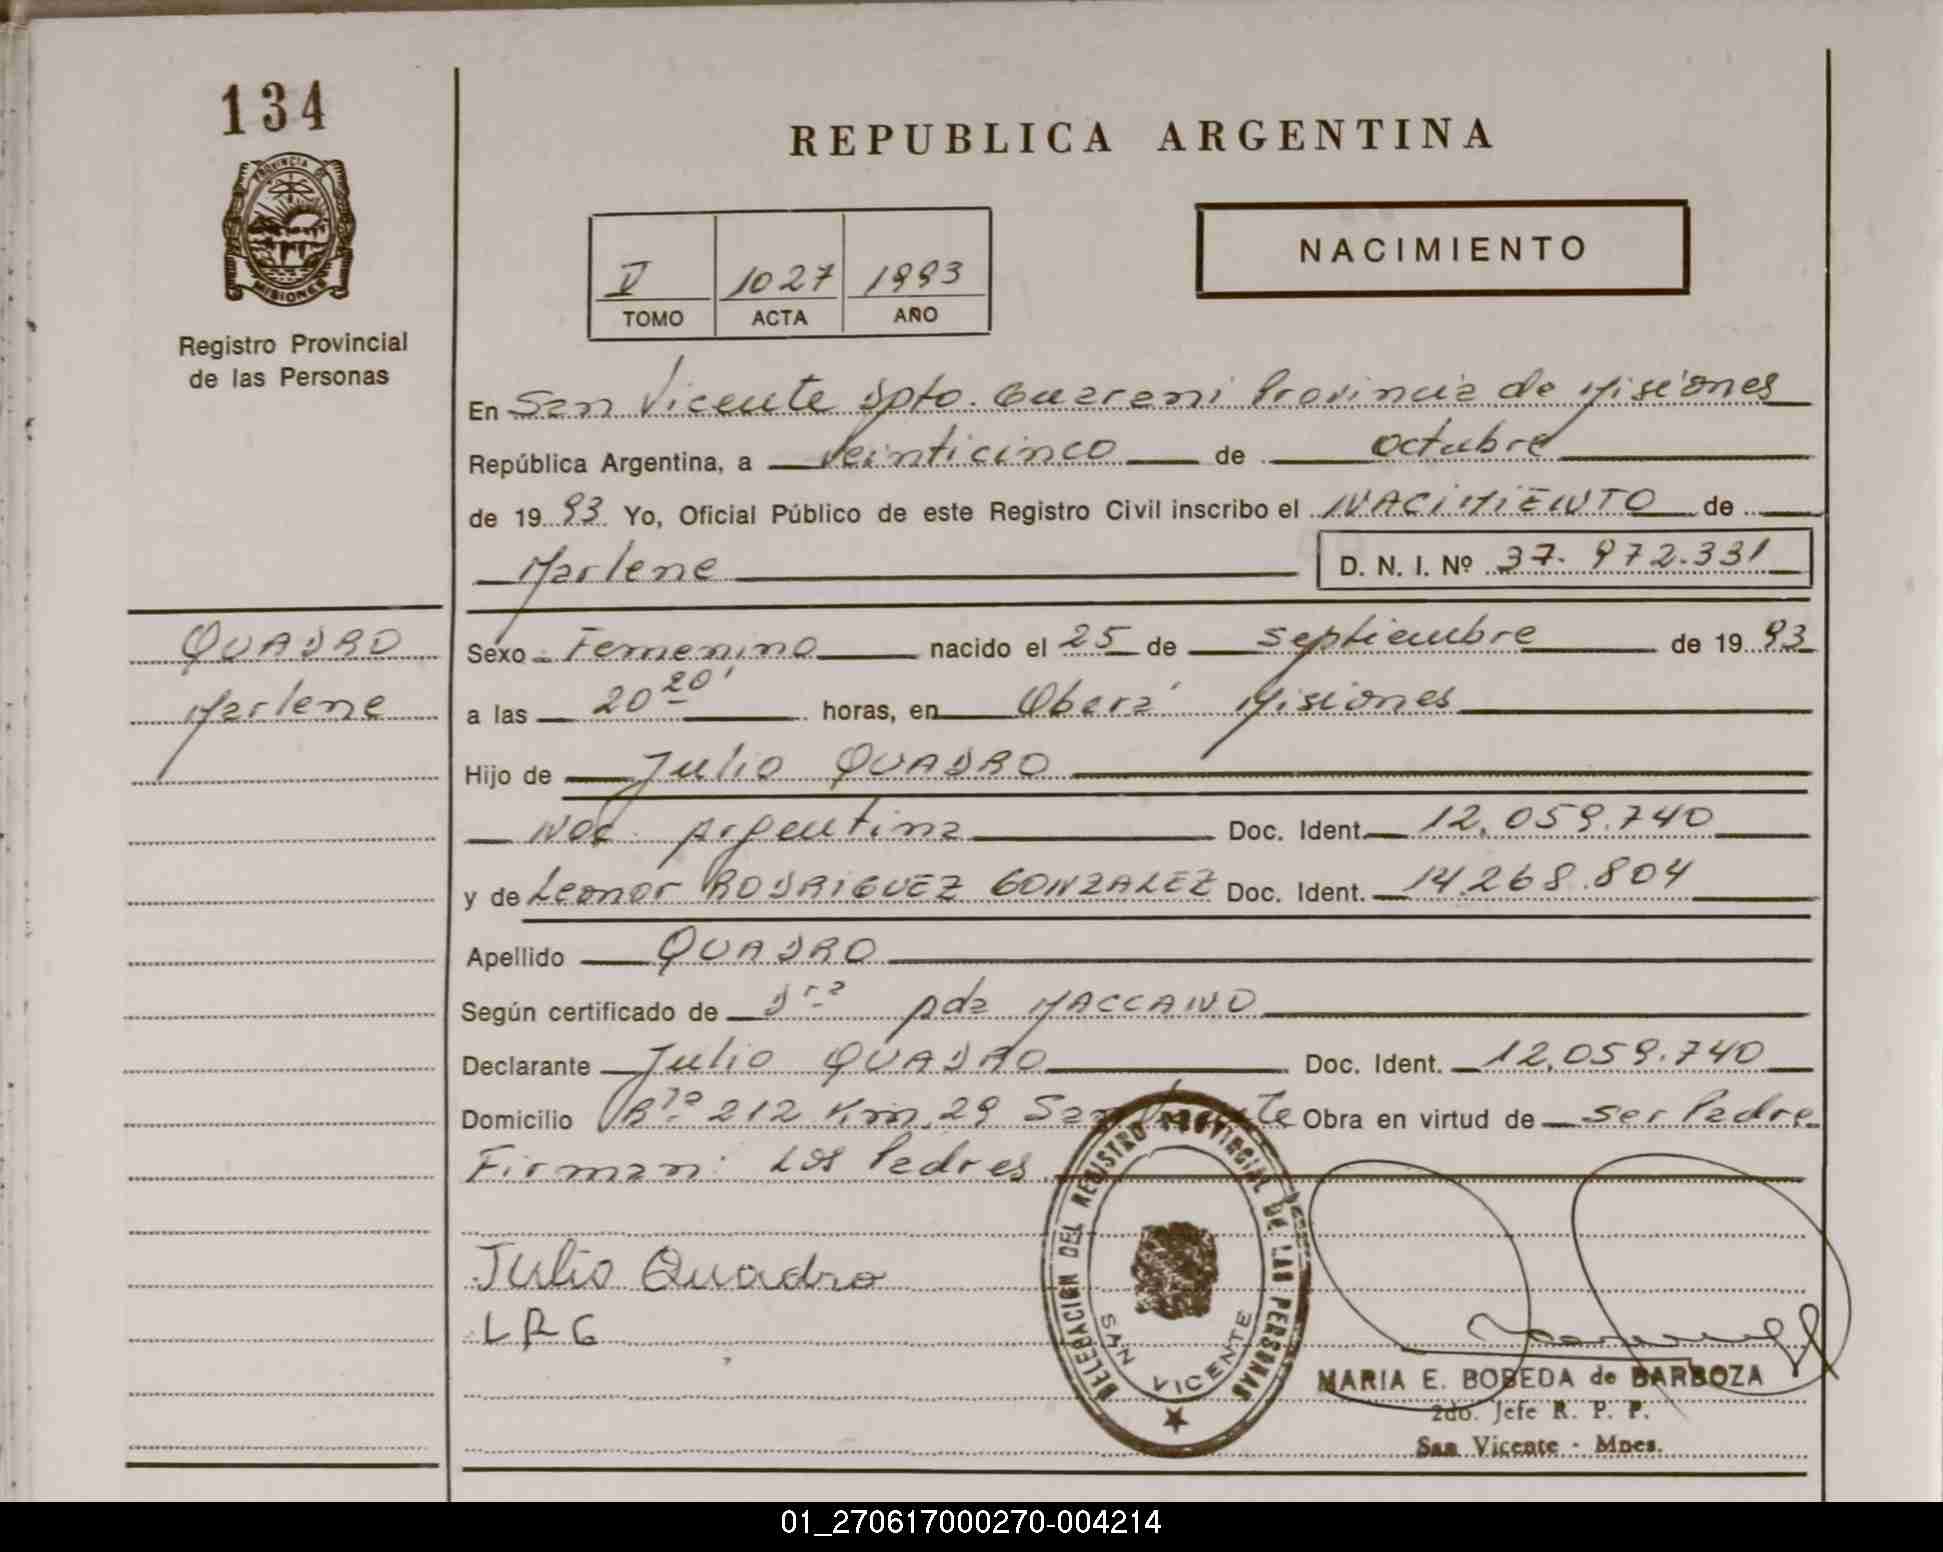 134
PROVINCIA DE
MISIONES
Registro Provincial
de las Personas
REPUBLICA ARGENTINA
NACIMIENTO
V 1027 1993
TOMO ACTA AÑO
En San Vicente Dpto. Guarani Provincia de Misiones
República Argentina, a veinticinco de octubre
de 1993 Yo, Oficial Público de este Registro Civil inscribo el NACIMIENTO de
Marlene D. N. I. Nº 37.972.331
QUADRO
Marlene
Sexo Femenino nacido el 25 de septiembre de 1993
a las 20 20' horas, en Oberá Misiones
Hijo de Julio QUADRO
Nac. Argentina Doc. Ident. 12.059.740
y de Leonor RODRIGUEZ GONZALEZ Doc. Ident. 14.268.804
Apellido QUADRO
Según certificado de Dra pda MACCANO
Declarante Julio QUADRO Doc. Ident. 12.059.740
Domicilio Rta 212 Km. 29 San Vicente Obra en virtud de ser Padre
Firman: Los Padres.
Julio Quadro
LRG
DELEGACION DEL REGISTRO PROVINCIAL DE LAS PERSONAS
SAN VICENTE
MARIA E. BOBEDA de BARBOZA
2do. Jefe R. P. P.
San Vicente - Mnes.
01_270617000270-004214